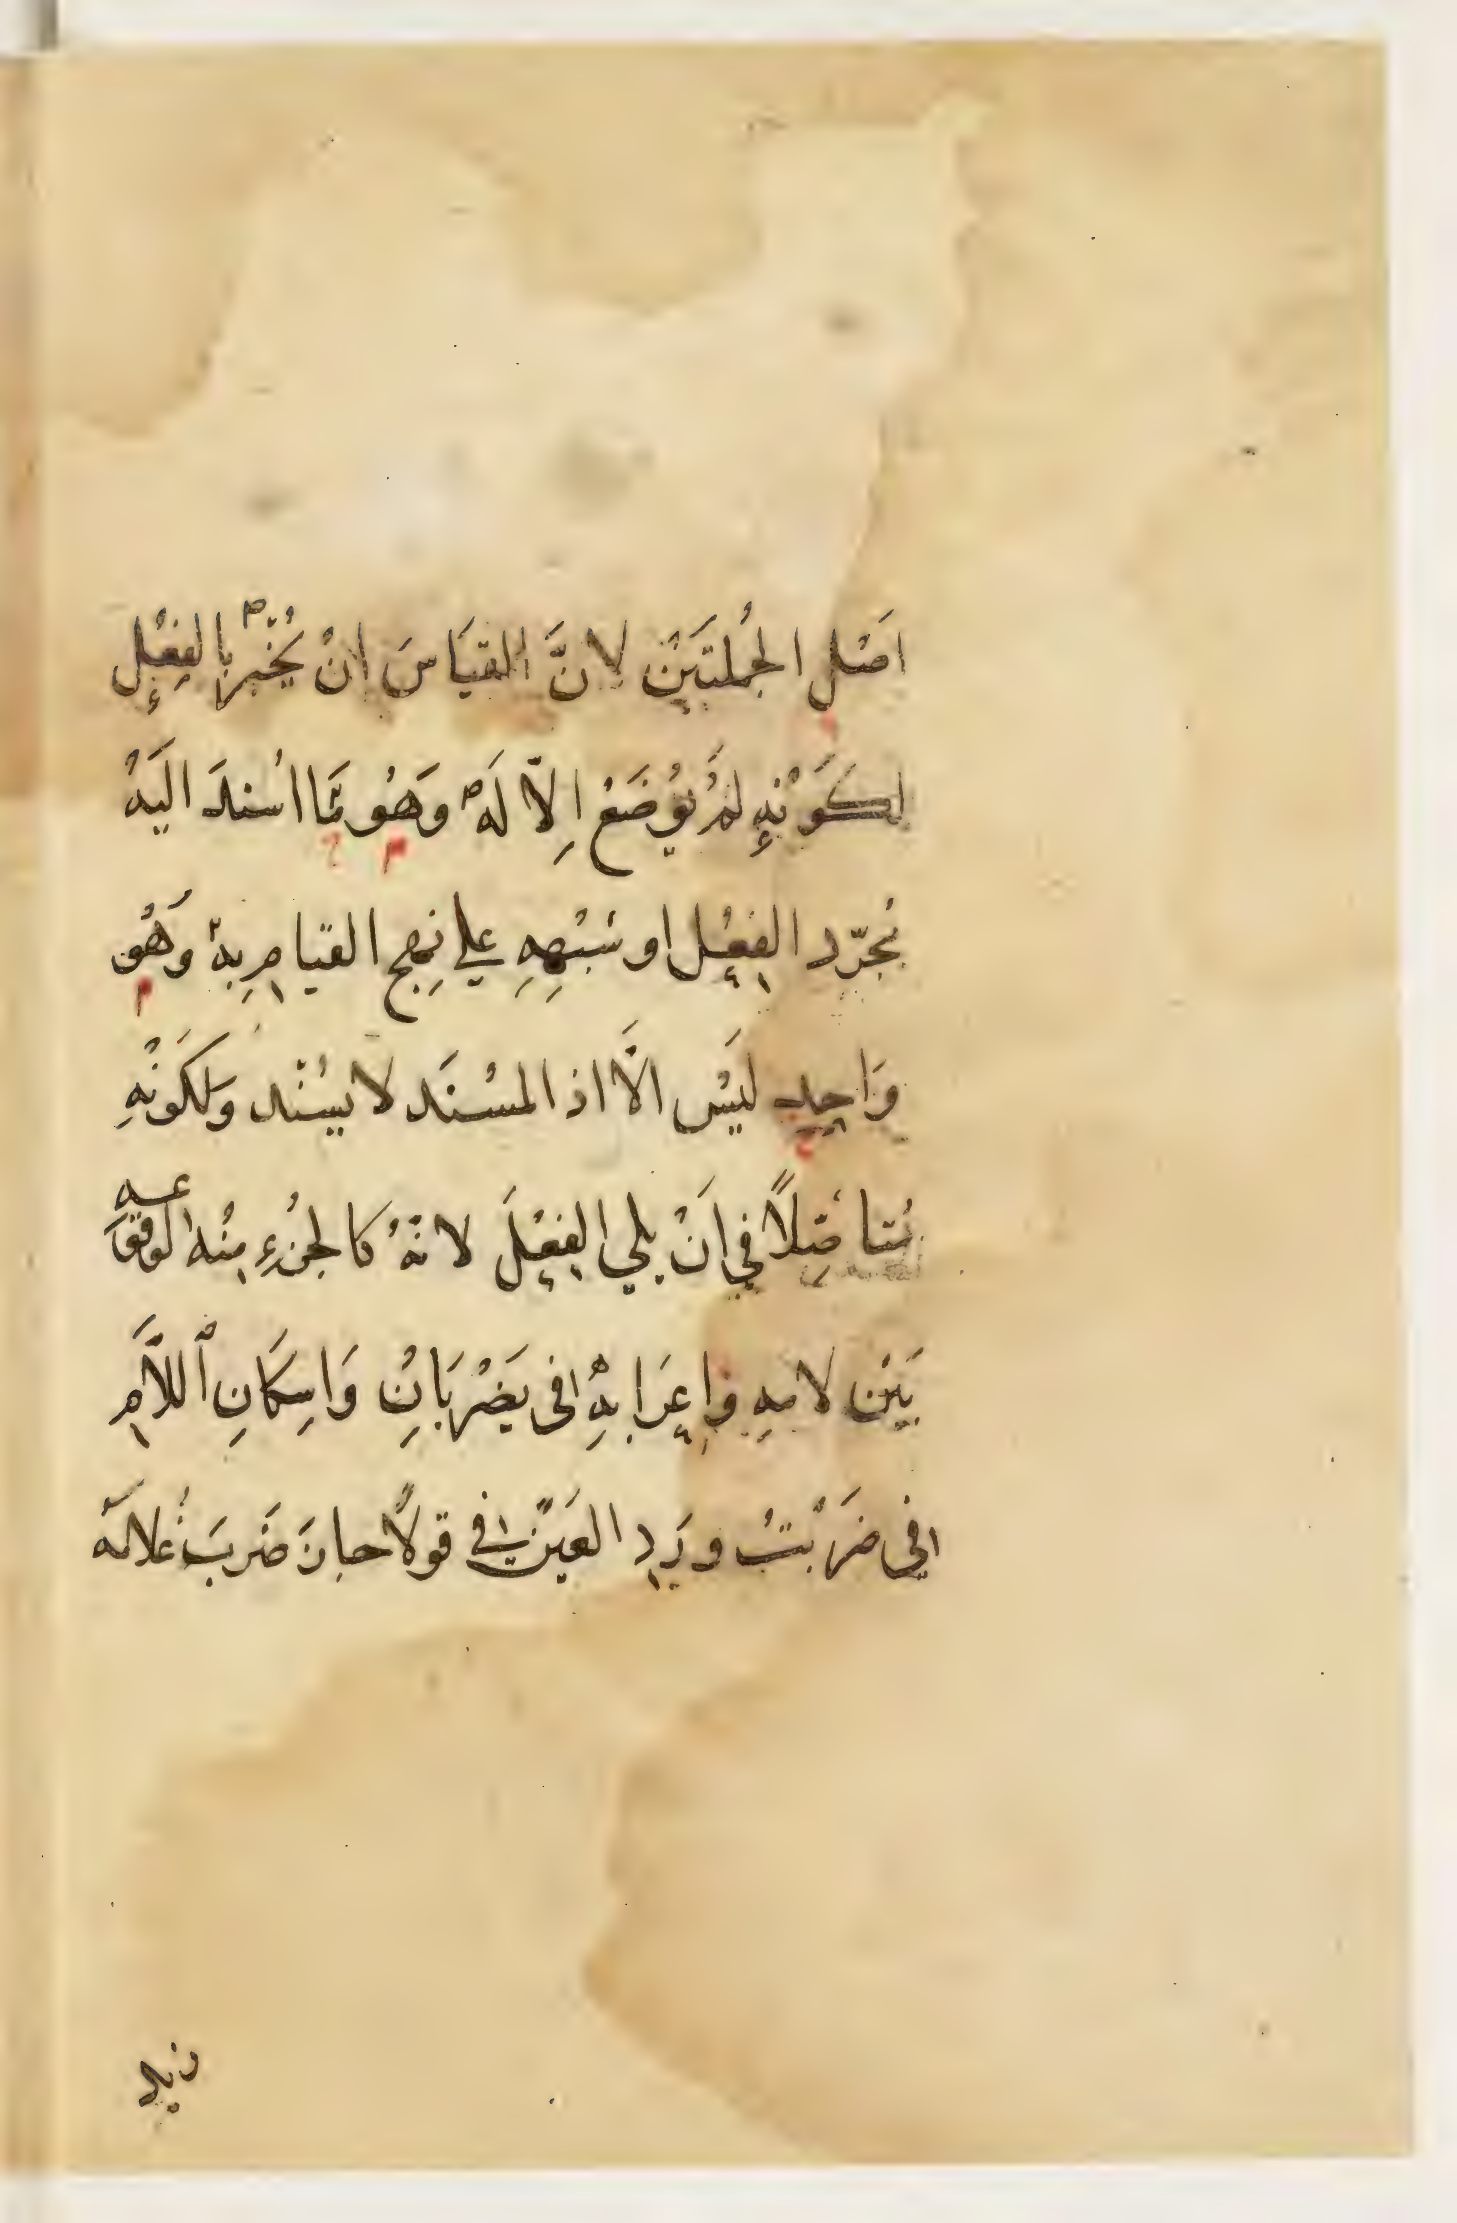 اَصْلِ الجُمْلَتَيْنِ لانَّ القيَاسَ انْ يُخْبَرَ بِالفِعْلِ
لِكَوْنِهِ لَمْ يُوْضَعْ اِلاّ لَهُ وَهُو مَّا اُسْنِدَ الَيْهُ
مُجَرّد الفِعْلِ او شَبْهِهِ علي نهجِ القيامِ بِهِ وَهُو
وَاحِدٍ ليَسْ الَّا اذ المسْنَد لا يسْنَد وَلكَوْنهِ
مُتاصّلًا فِي اَنْ يلي الفِعْلَ لانّهُ كالجزُءِ مِنْهُ لوقوعه
بَيْن لامهِ وَاِعِرَابِهِ في يَضْرِبَانِ وَاسِكَانِ اللاَّمِ
في ضَرَبْتُ ورَدِ العَيْن في قولا جازَ ضَربَ غلامَهُ
زيد